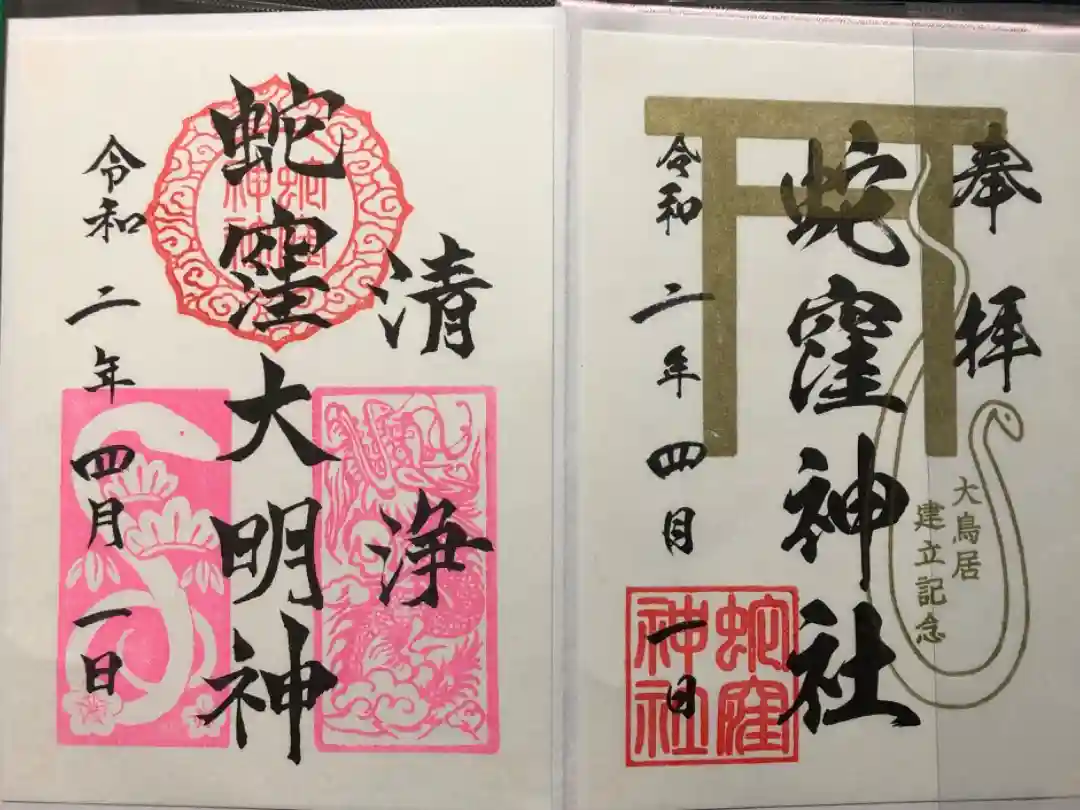 奉拝
大鳥居
建立記念
蛇窪神社
蛇窪神社
令和二年四月一日
清浄
蛇窪大明神
蛇窪神社
令和二年四月一日